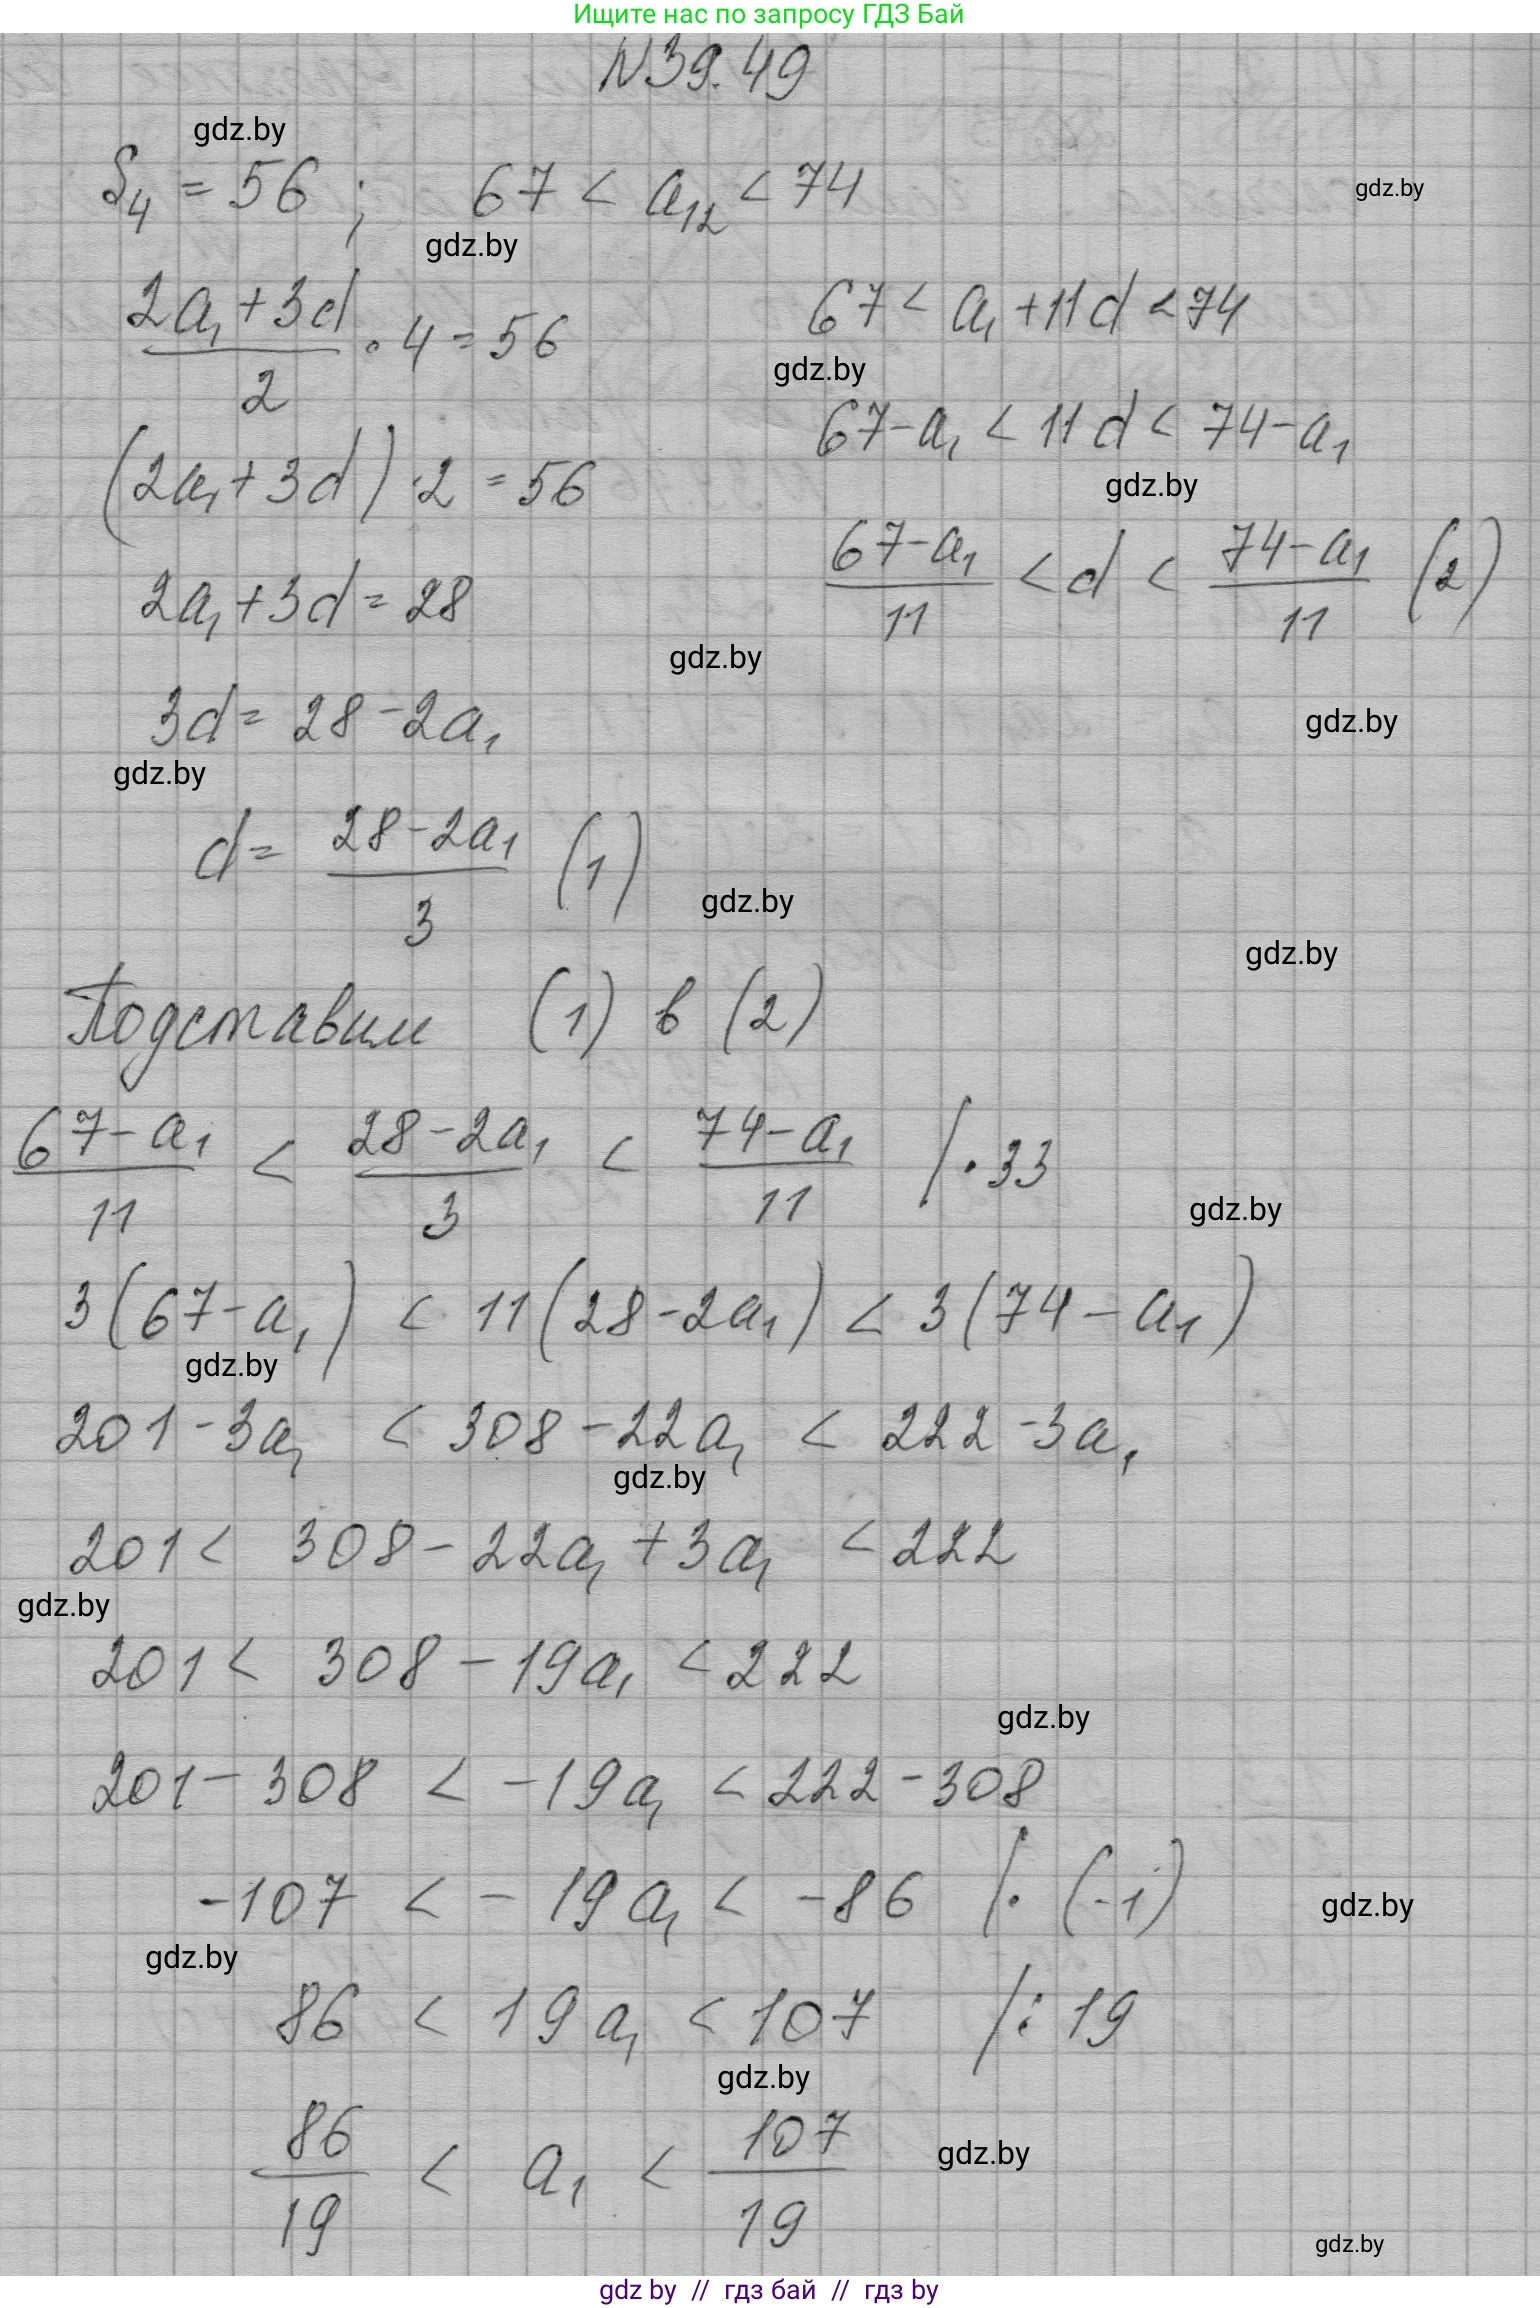 Ищите нас по запросу ГДЗ Бай
N39.49
gdz.by
S₄ = 56 ; 67 < a₁₂ < 74
gdz.by
gdz.by
(2a₁+3d)/2 · 4 = 56
67 < a₁+11d < 74
gdz.by
67-a₁ < 11d < 74-a₁
(2a₁+3d)·2 = 56
gdz.by
(67-a₁)/11 < d < (74-a₁)/11 (2)
2a₁+3d = 28
gdz.by
3d = 28-2a₁
gdz.by
gdz.by
d = (28-2a₁)/3 (1)
gdz.by
gdz.by
Подставим (1) в (2)
(67-a₁)/11 < (28-2a₁)/3 < (74-a₁)/11 /·33
gdz.by
3(67-a₁) < 11(28-2a₁) < 3(74-a₁)
gdz.by
201-3a₁ < 308-22a₁ < 222-3a₁
gdz.by
201 < 308-22a₁+3a₁ < 222
gdz.by
201 < 308-19a₁ < 222
gdz.by
201-308 < -19a₁ < 222-308
-107 < -19a₁ < -86 /·(-1)
gdz.by
gdz.by
86 < 19a₁ < 107 /:19
gdz.by
86/19 < a₁ < 107/19
gdz.by
gdz.by
gdz by // гдз бай // гдз by